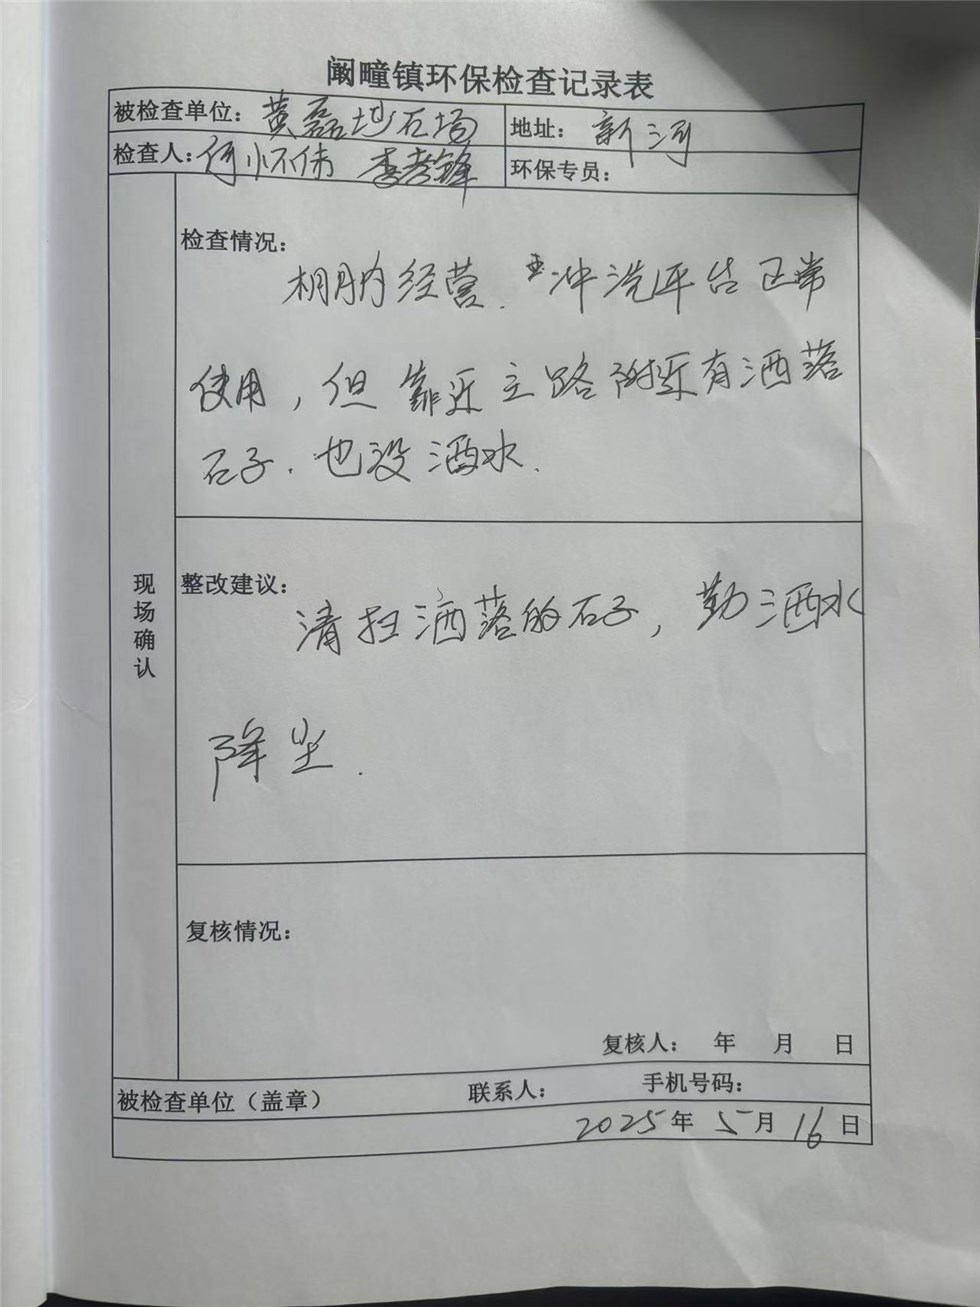 阚疃镇环保检查记录表
被检查单位：黄磊地石场 地址：新河
检查人：何怀伟 李孝锋 环保专员：
现场确认
检查情况：
棚内经营．冲洗平台正常
使用，但靠近主路附近有洒落
石子．也没洒水．
整改建议：
清扫洒落的石子，勤洒水
降尘．
复核情况：
复核人： 年 月 日
被检查单位（盖章） 联系人： 手机号码：
2025年 5月 16日